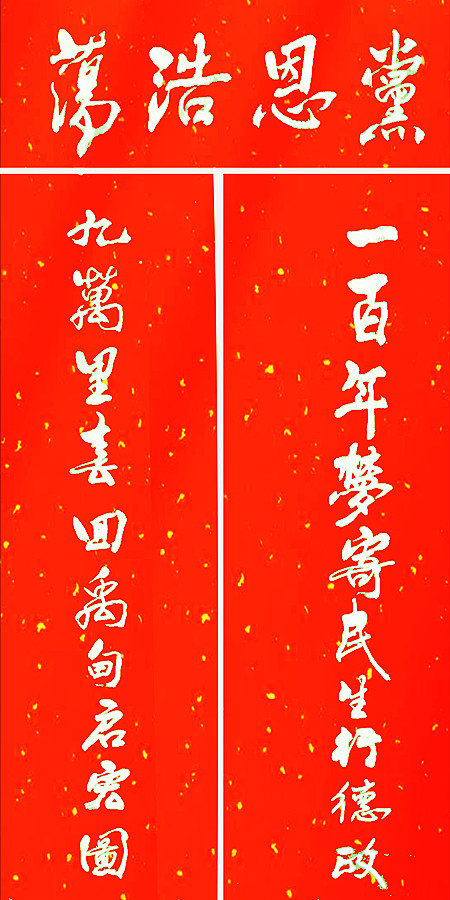 黨恩浩蕩
一百年夢寄民生行德政
九萬里春回禹甸启宏圖